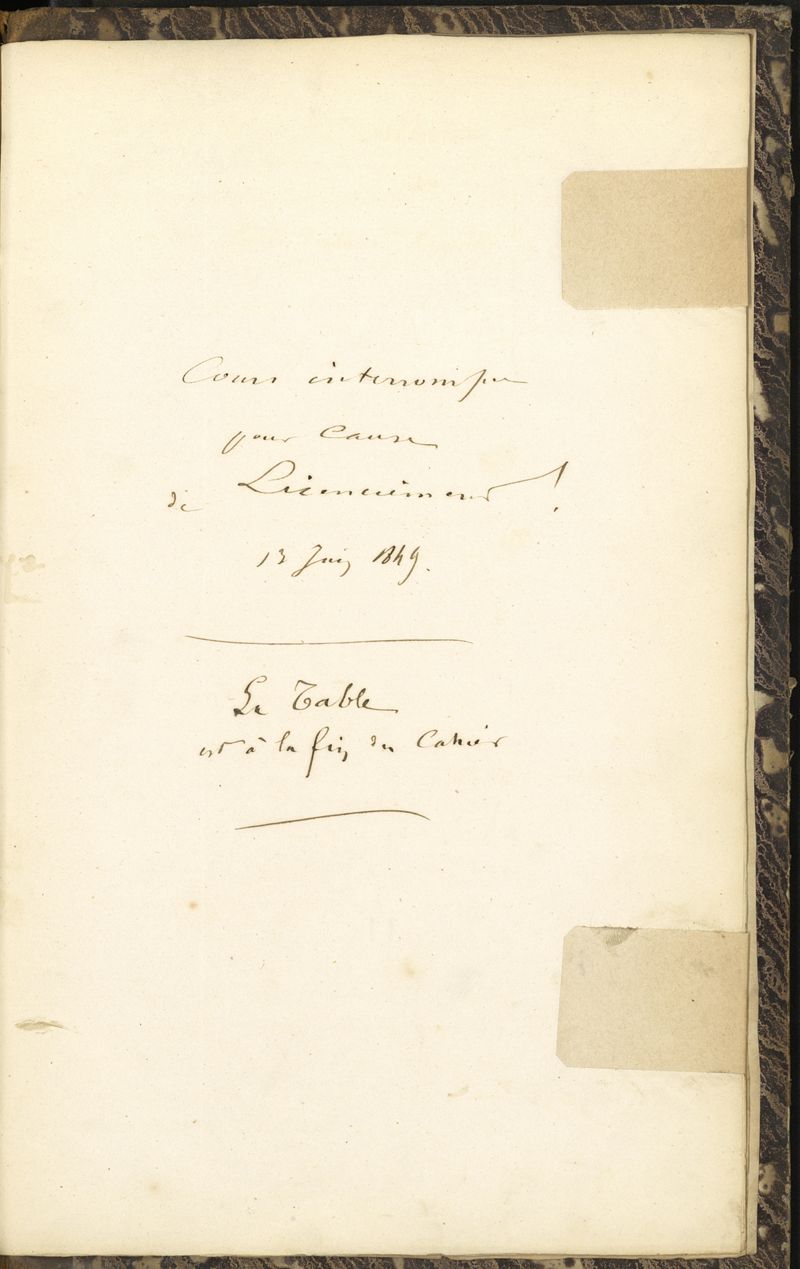 Cours interrompu
pour Cause
de Licenciement !
13 Juin 1849.
La Table
est à la fin du Cahier